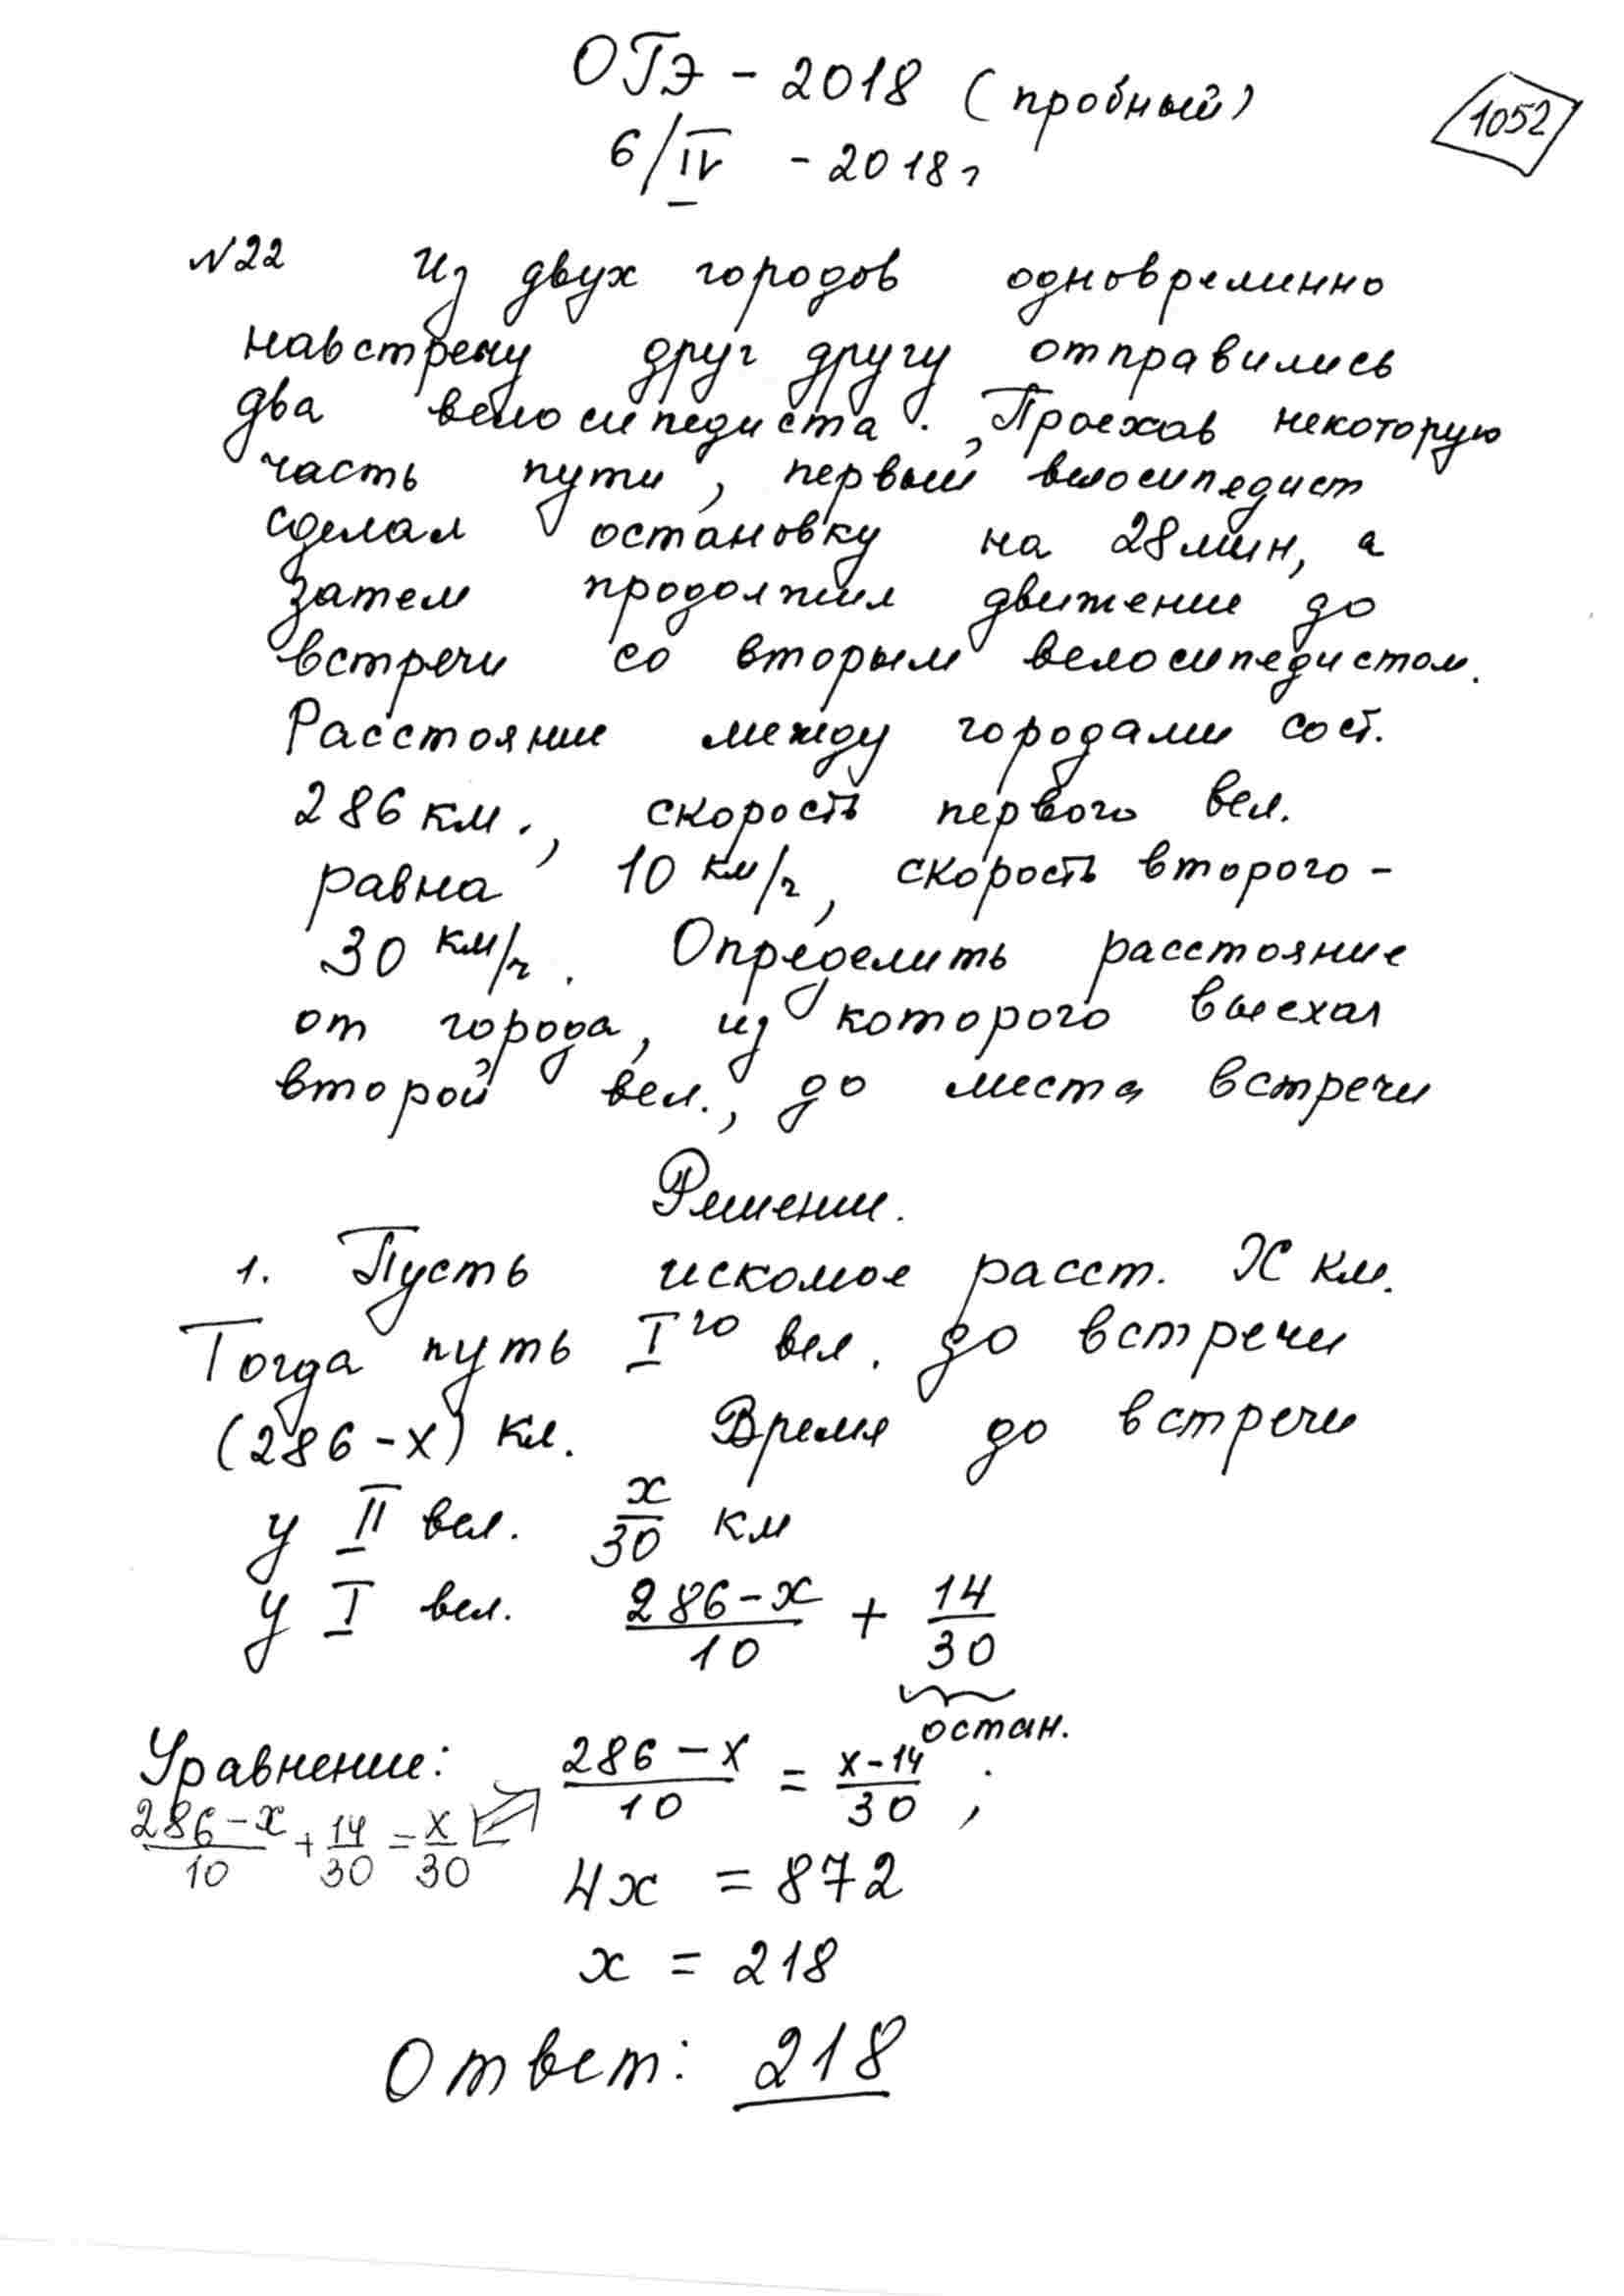 ОГЭ - 2018 (пробный)
1052
6/IV - 2018г
N22 Из двух городов одновременно
навстречу друг другу отправились
два велосипедиста. Проехав некоторую
часть пути, первый велосипедист
сделал остановку на 28мин, а
затем продолжил движение до
встречи со вторым велосипедистом.
Расстояние между городами сост.
286 км., скорость первого вел.
равна 10 км/ч, скорость второго -
30 км/ч. Определить расстояние
от города, из которого выехал
второй вел., до места встречи
Решение.
1. Пусть искомое расст. X км.
Тогда путь I го вел. до встречи
(286-x) км. Время до встречи
у II вел. x/30 км
у I вел. (286-x)/10 + 14/30
остан.
Уравнение: (286-x)/10 = (x-14)/30 ;
(286-x)/10 + 14/30 = x/30 ⇔
4x = 872
x = 218
Ответ: 218